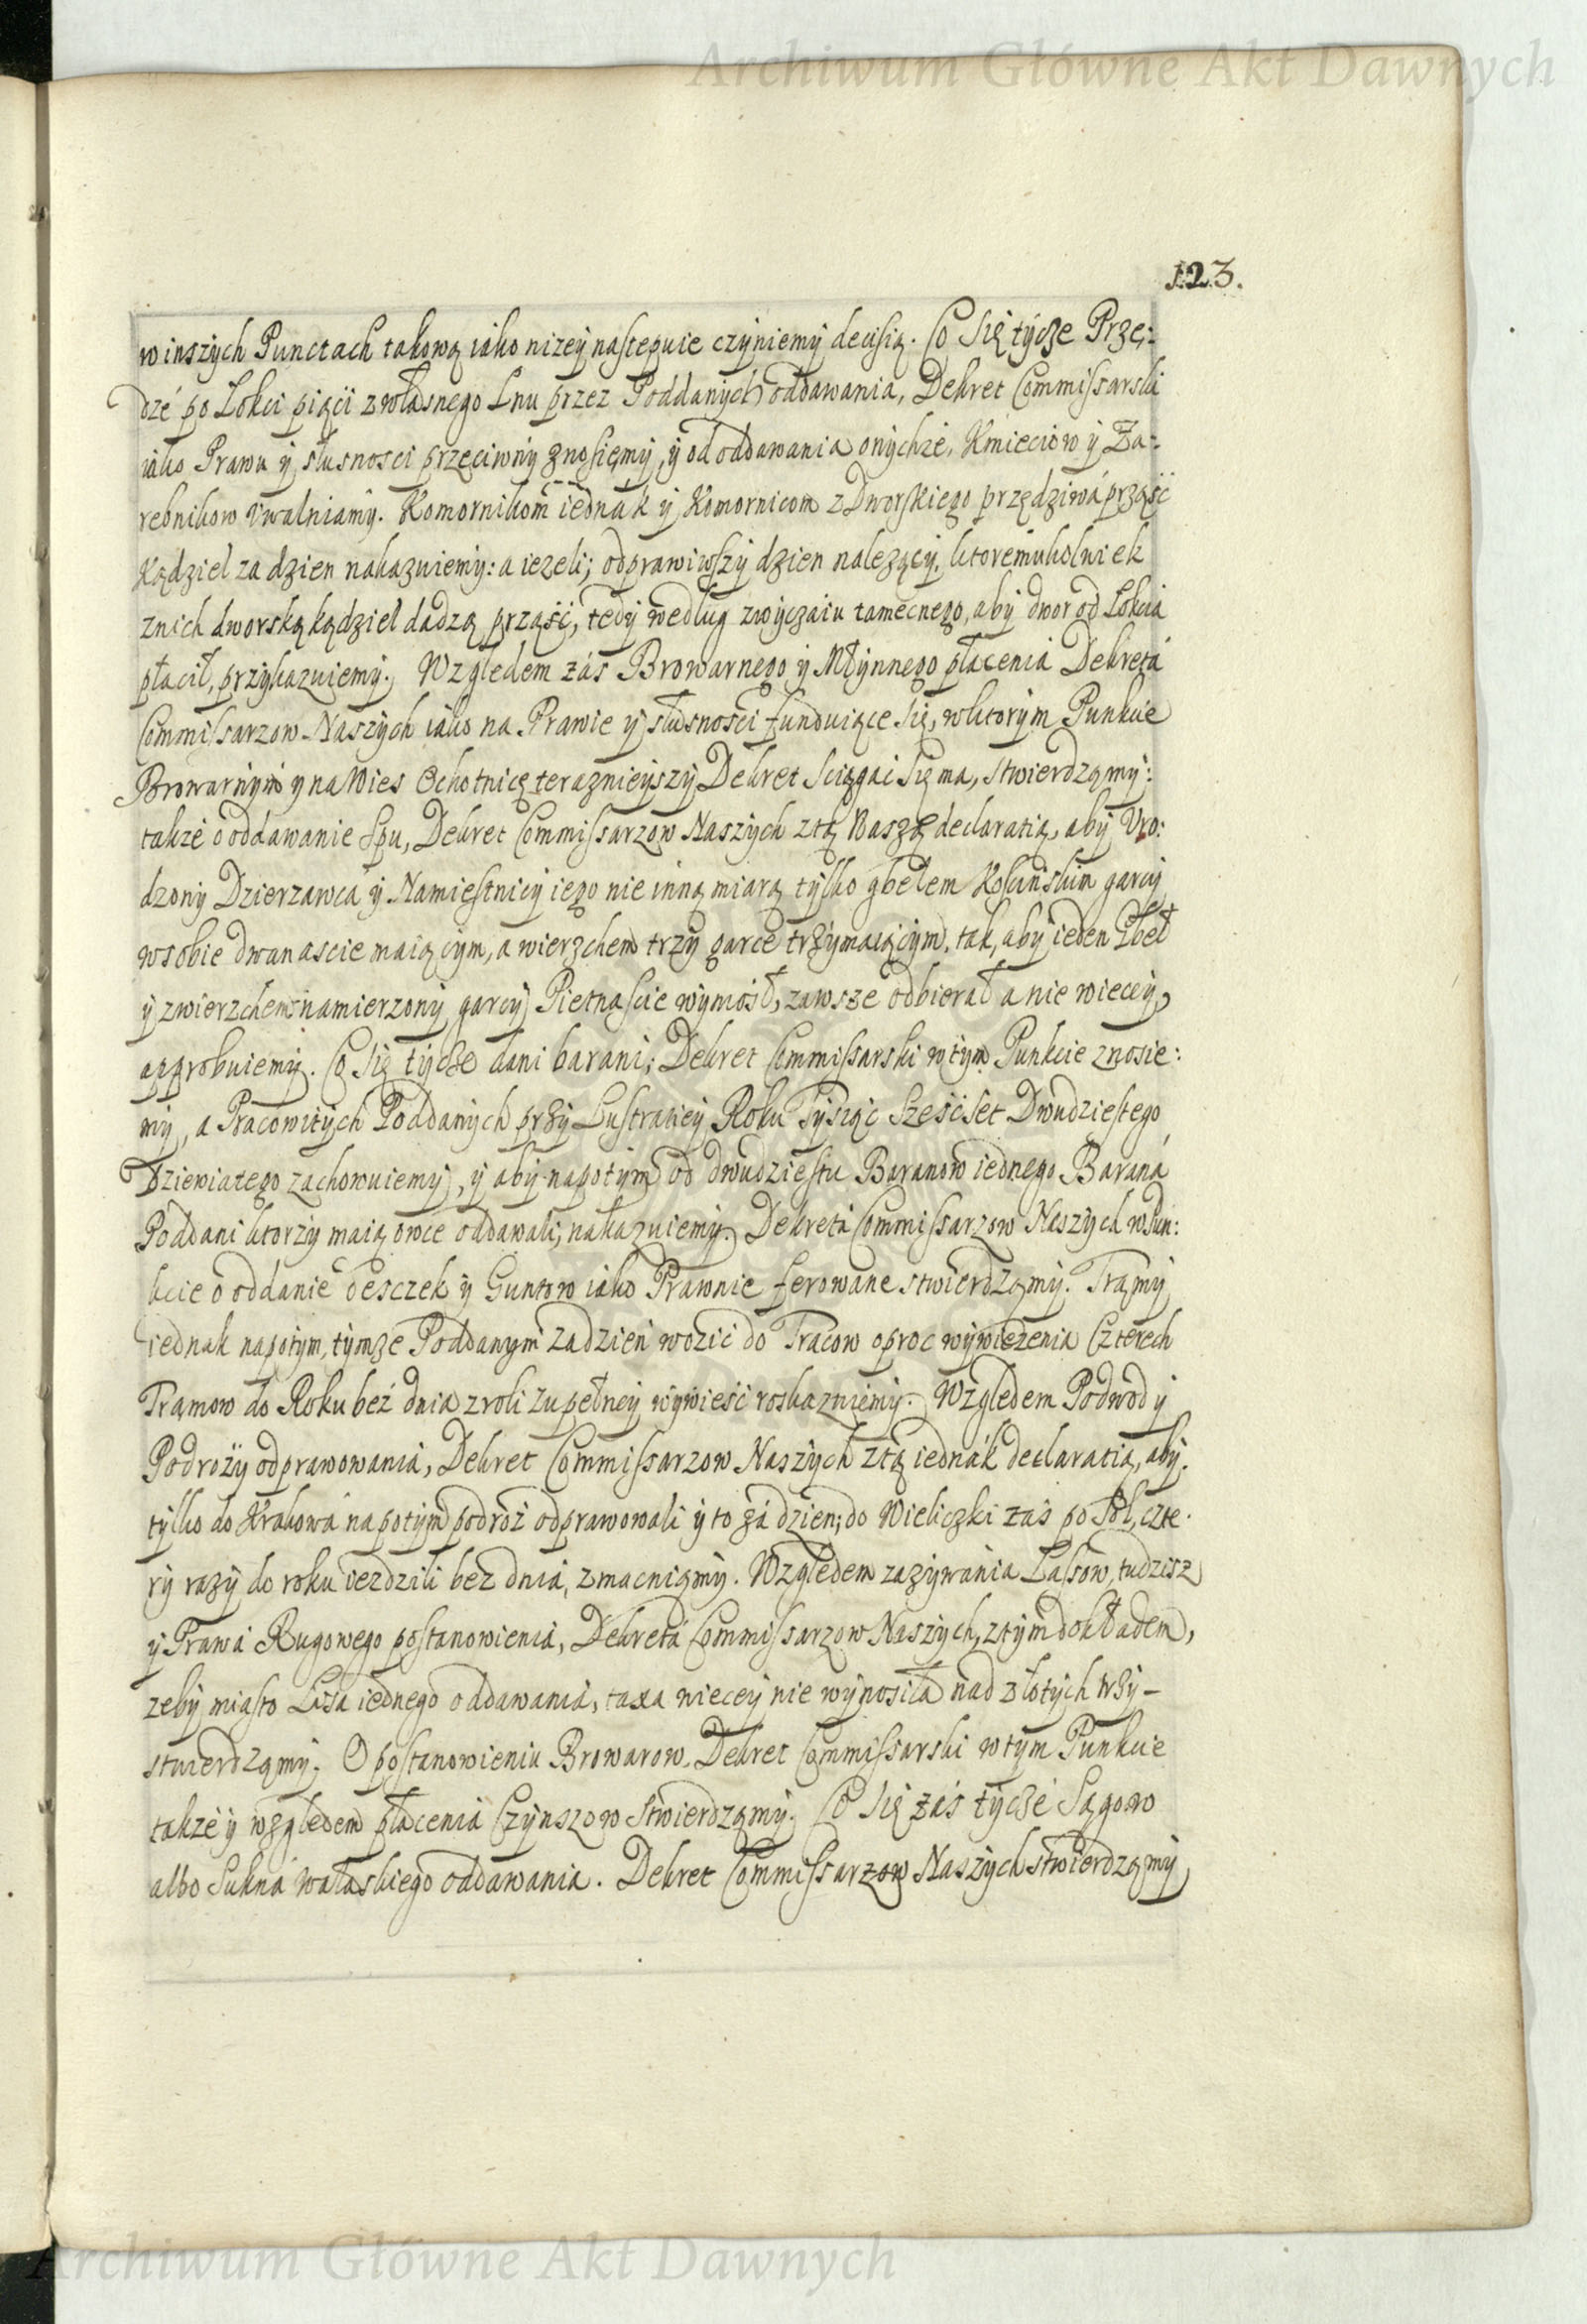 Archiwum Główne Akt Dawnych
123.
w inszych Punctach takową iako niżey nastepuie czyniemy decisią. Co się tycze Przę:
dze po Łokci pięci z własnego Lnu przez Poddanych oddawania, Dekret Commissarski
iako Prawu y słusnosci przeciwny znosięmy, y od oddawania onychże, Kmieciow y Za:
rebnikow vwalniamy. Komornikom iednák y Komornicom z Dworskiego przędziwá prząść
Kądziel za dzien nakazuiemy: a iezeli; odprawiwszy dzien nalezący, ktoremukolwiek
z nich dworską kądziel dadzą prząść, tedy według zwyczaiu tamecnego, aby dwor od Łokcia
płacił, przykazuiemy. Względem zás Browarnego y Młynnego płacenia Dekretá
Commissarzow Naszych iako na Prawie y słusności funduiące się, w ktorym Punkcie
Browarnym y na Wies Ochotnicę teraznieyszy Dekret sciągáć się ma, stwierdzamy:
także o oddawanie Spu, Dekret Commissarzow Naszych z tą Naszą declaratią, aby Vro:
dzony Dzierzawca y Namiestnicy iego nie inną miarą tylko gbełem garcy
w sobie dwanascie maiącym, a wierzchem trzy garce trzymaiącym, tak, aby ieden Gbeł
y z wierzchem namierzony garcy Pietnascie wynosił, zawsze odbierał a nie wiecey,
approbuiemy. Co się tycze dani barani; Dekret Commissarski w tym Punkcie znosie:
my, a Pracowitych Poddanych przy Lustraciey Roku Tysiąc Sześćset Dwudziestego
Dziewiatego zachowuiemy, y aby napotym od dwudziestu Baranow iednego Barana
Poddani ktorzy maią owce oddawali, nakazuiemy. Dekretá Commissarzow Naszych w Pun:
kcie o oddanie Desczek y Guntow iako Prawnie ferowane stwierdzamy. Tramy
iednak napotym, tymze Poddanym za dzien wozić do Tracow oproc wywiezenia Czterech
Tramow do Roku beż dnia z roli zupełney wywieść roskazuiemy. Względem Podwod y
Podroży odprawowania, Dekret Commissarzow Naszych z tą iednák declaratią, aby
tylko do Krakowá napotym podroż odprawowali y to zá dzien; do Wieliczki zaś po Sol, czte:
ry razy do roku iezdzili bez dnia, zmacniamy. Względem zazywánia Lassow, tudzisz
y Prawá Rugowego postanowienia, Dekretá Commissarzow Naszych, z tym dokładem,
zeby miasto Lisa iednego oddawania, taxa wiecey nie wynosiła nad złotych trzy –
stwierdzamy. O postanowieniu Browarow. Dekret Commissarski w tym Punkcie
także y względem płacenia Czynszow stwierdzamy. Co się zás tycze Sągow
albo Sukna wałaskiego oddawania. Dekret Commissarzow Naszych stwierdzamy
Archiwum Główne Akt Dawnych